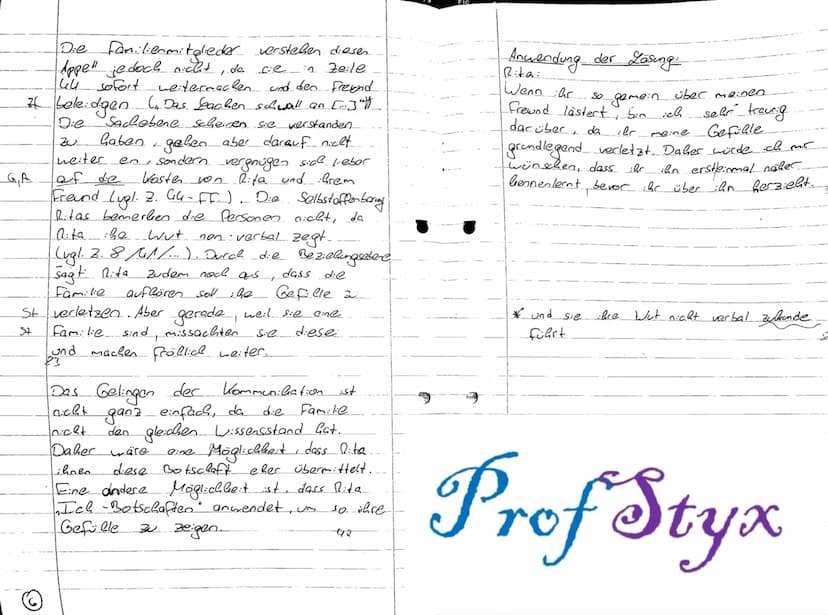 Die Familienmitglieder verstehen diesen
Appell jedoch nicht, da sie in Zeile
44 sofort weitermachen und den Freund
Zf beleidgen („Das Lachen schwall an [...]").
Die Sachebene scheinen sie verstanden
zu haben, gehen aber darauf nicht
weiter en, sondern vergnügen sich lieber
G,A auf die Kosten von Rita und ihrem
Freund (vgl. Z. 44-ff.). Die Selbstoffenbarung
Ritas bemerken die Personen nicht, da
Rita ihe Wut non-verbal zegt
(vgl. Z. 8/41/...). Durch die Beziehungsebene
sagt Rita zudem noch aus, dass die
Familie aufhören soll ihe Gefülle z
St verletzen. Aber gerade, weil sie ene
St Familie sind, missachten sie diese
und machen fröhlich weiter.
Das Gelingen der Kommunikation ist
nicht ganz einfach, da die Familie
nicht den gleichen Wissensstand hat.
Daher wäre eine Möglichkeit, dass Rita
ihnen diese Botschaft eher übermittelt.
Eine andere Möglichkeit ist, dass Rita
„Ich-Botschaften" anwendet, um so ihre
Gefülle zu zeigen.
6
Anwendung der Lösung:
Rita:
Wenn ihr so gemein über meinen
Freund lästert, bin ich sehr traurig
darüber, da ihr meine Gefülle
grundlegend verletzt. Daher würde ich mir
wünschen, dass ihr ihn ersteinmal näher
kennenlernt, bevor ihr über ihn herzieht.
* und sie ihre Wut nicht verbal zukande
führt
Prof Styx